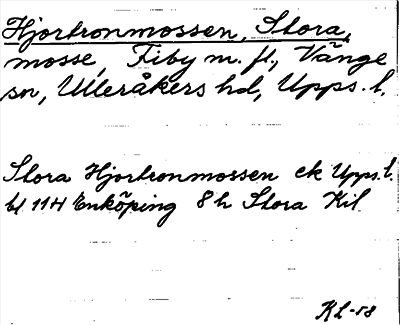 Hjortronmossen, Stora,
mosse, Fiby m. fl., Vänge
sn, Ulleråkers hd, Upps. l.
Stora Hjortronmossen ek Upps. l.
bl 11H Enköping 8 h Stora Kil
KL-58